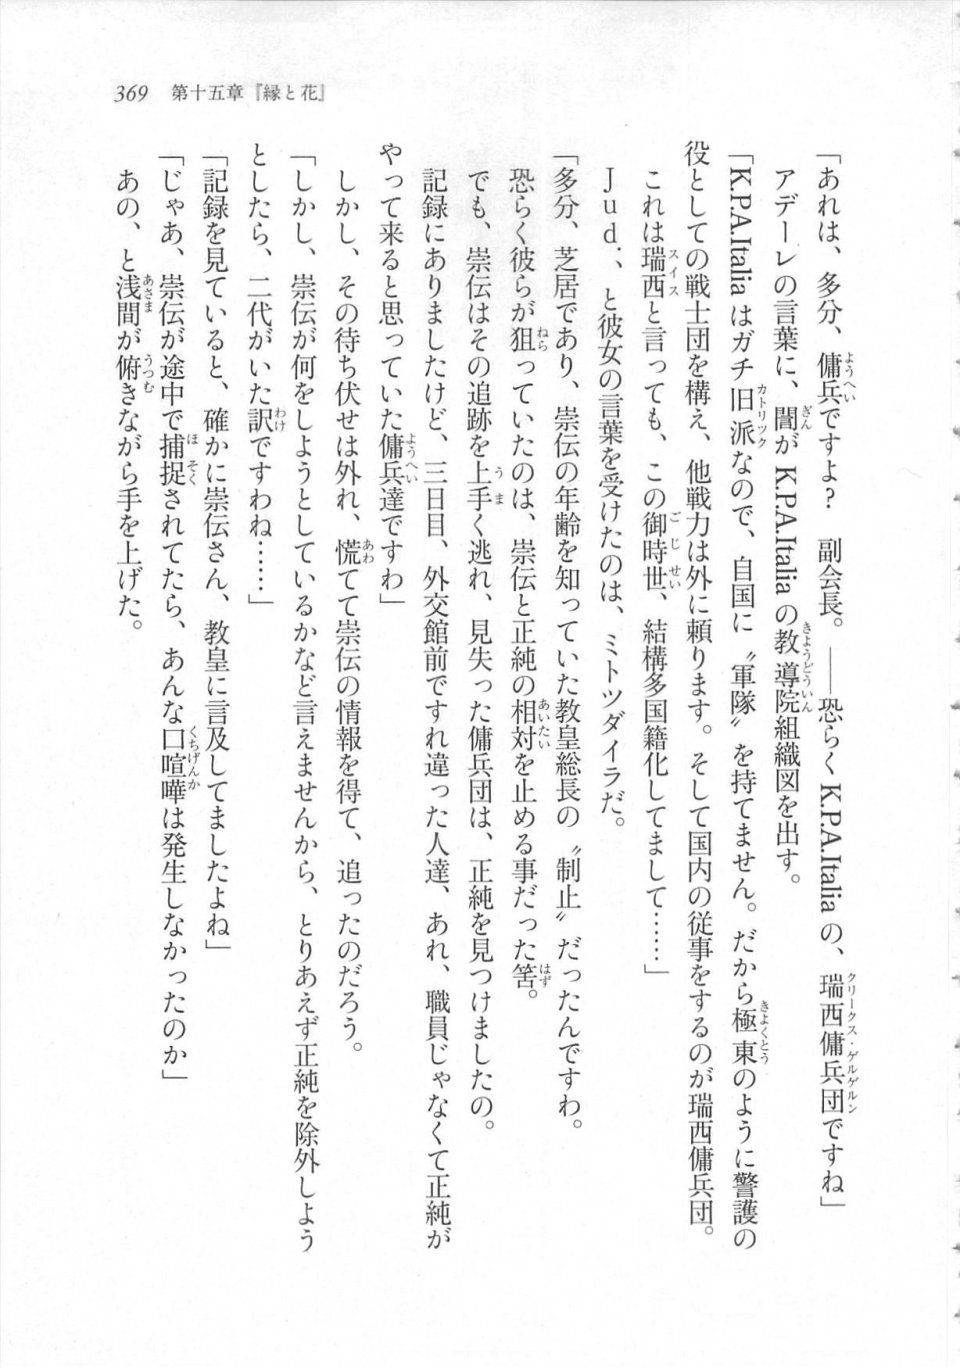 369　第十五章『縁と花』
「あれは、多分、傭兵ですよ？　副会長。――恐らくK.P.A.Italiaの、瑞西傭兵団ですね」
　アデーレの言葉に、誾がK.P.A.Italiaの教導院組織図を出す。
「K.P.A.Italiaはガチ旧派なので、自国に〝軍隊〟を持てません。だから極東のように警護の
役としての戦士団を構え、他戦力は外に頼ります。そして国内の従事をするのが瑞西傭兵団。
　これは瑞西と言っても、この御時世、結構多国籍化してまして……」
　Ｊｕｄ．、と彼女の言葉を受けたのは、ミトツダイラだ。
「多分、芝居であり、崇伝の年齢を知っていた教皇総長の〝制止〟だったんですわ。
　恐らく彼らが狙っていたのは、崇伝と正純の相対を止める事だった筈。
　でも、崇伝はその追跡を上手く逃れ、見失った傭兵団は、正純を見つけましたの。
　記録にありましたけど、三日目、外交館前ですれ違った人達、あれ、職員じゃなくて正純が
やって来ると思っていた傭兵達ですわ」
　しかし、その待ち伏せは外れ、慌てて崇伝の情報を得て、追ったのだろう。
「しかし、崇伝が何をしようとしているかなど言えませんから、とりあえず正純を除外しよう
としたら、二代がいた訳ですわね……」
「記録を見ていると、確かに崇伝さん、教皇に言及してましたよね」
「じゃあ、崇伝が途中で捕捉されてたら、あんな口喧嘩は発生しなかったのか」
　あの、と浅間が俯きながら手を上げた。